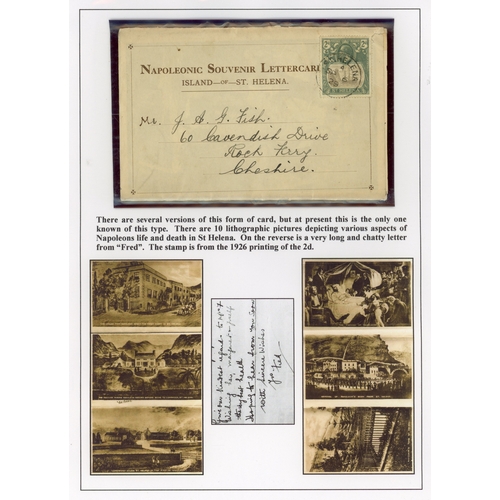 NAPOLEONIC SOUVENIR LETTERCARD
ISLAND—OF—ST. HELENA.
Mr. J. A. G. Fish.
60 Cavendish Drive
Rock Ferry.
Cheshire.
There are several versions of this form of card, but at present this is the only one
known of this type. There are 10 lithographic pictures depicting various aspects of
Napoleons life and death in St Helena. On the reverse is a very long and chatty letter
from “Fred”. The stamp is from the 1926 printing of the 2d.
Give our kindest regards to
Wishing
the best health
Hoping to hear from you soon
With Sincere Wishes